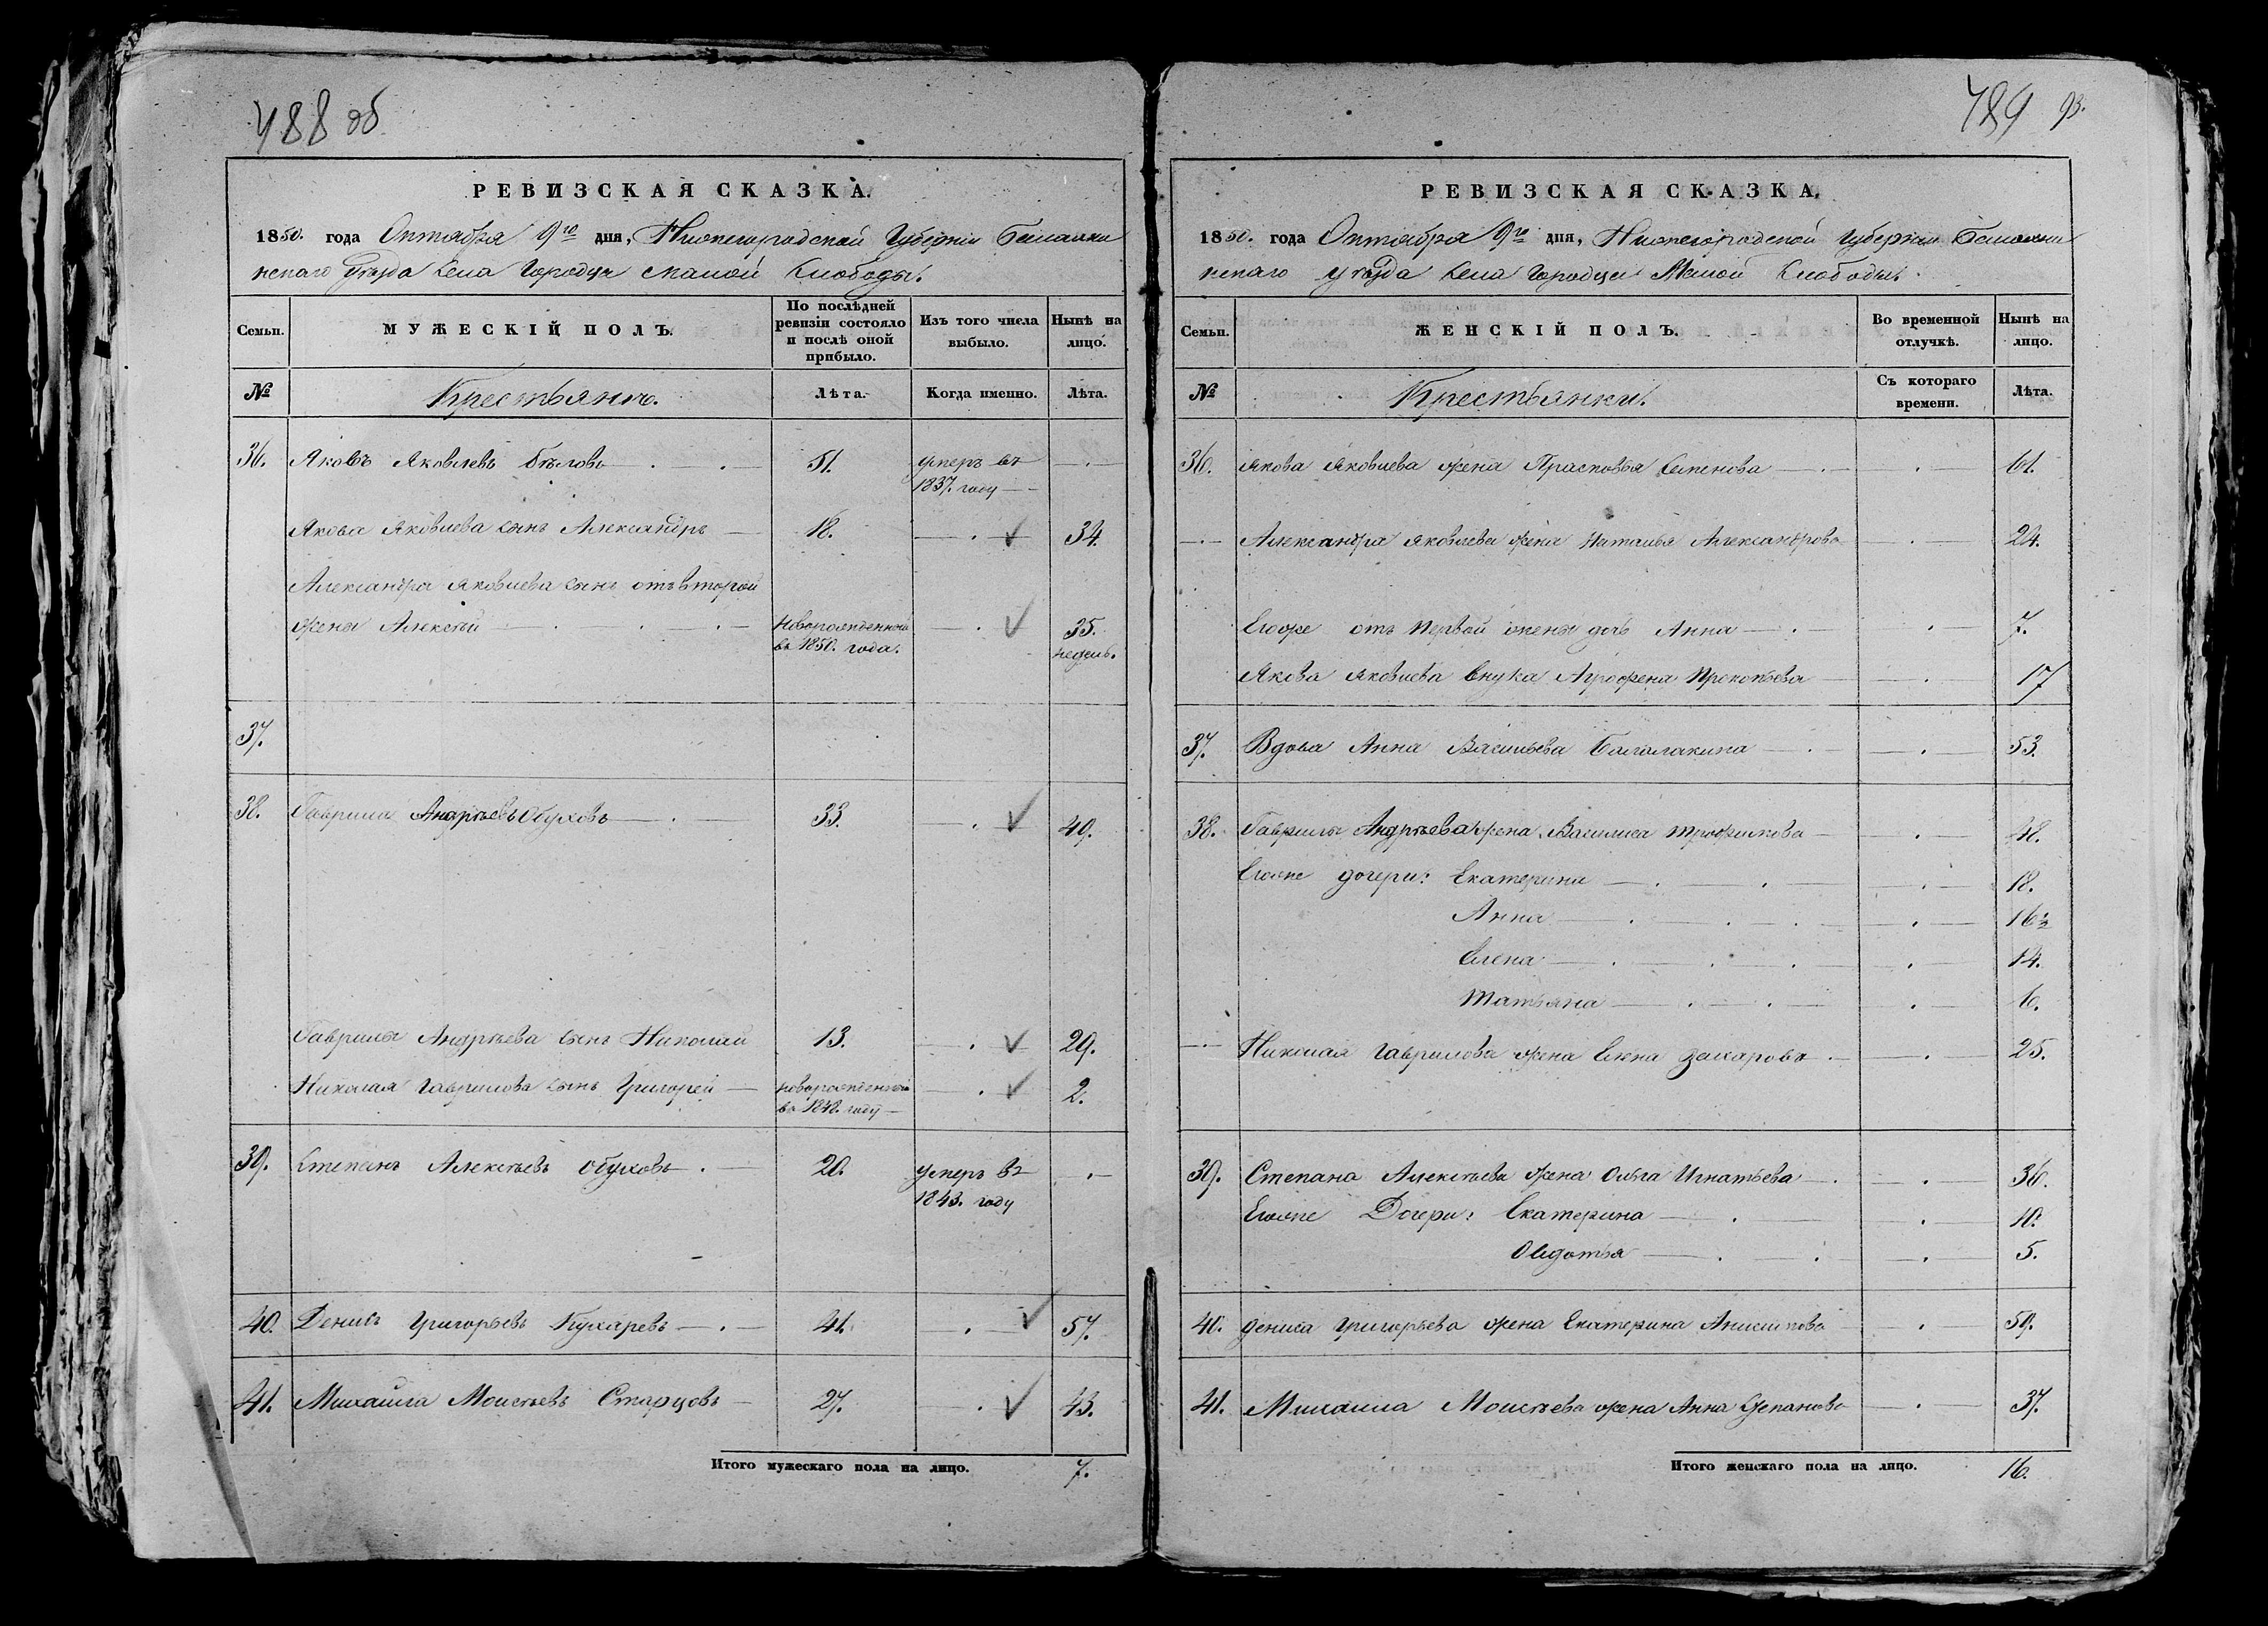 488 об
РЕВИЗСКАЯ СКАЗКА.
1850. года Октября 9го дня, Нижегородской Губерніи Балахни
нскаго Уѣзда Села Городца малой Слободы.
Семьи.
МУЖЕСКІЙ ПОЛЪ.
По послѣдней ревизіи состояло и послѣ оной прибыло.
Изъ того числа выбыло.
Нынѣ на лицо.
№
Крестьяне.
Лѣта.
Когда именно.
Лѣта.
36. Яковъ Яковлевъ Бѣловъ 51. умеръ въ
1837. году
Якова Яковлева сынъ Александръ 18. 34.
Александра Яковлева сынъ отъ второй
жены Алексѣй новорожденный 35.
въ 1850. года. недель.
37.
38. Гаврила Андрѣевъ Обуховъ 33. 49.
Гаврилы Андрѣева сынъ Николай 13. 29.
Николая Гаврилова сынъ Григорей новорожденный 2.
въ 1848. году
39. Степанъ Алексѣевъ Обуховъ 20. умеръ въ
1843. году
40. Денисъ Григорьевъ Кухаревъ 41. 57.
41. Михайла Моисѣевъ Старцовъ 27. 43.
Итого мужескаго пола на лицо. 7.
489 93.
РЕВИЗСКАЯ СКАЗКА.
1850. года Октября 9го дня, Нижегородской Губерніи Балахни
нскаго уѣзда Села Городца Малой Слободы.
Семьи.
ЖЕНСКІЙ ПОЛЪ.
Во временной отлучкѣ.
Нынѣ на лицо.
№
Крестьянки.
Съ котораго времени.
Лѣта.
36. Якова Яковлева жена Прасковья Семенова 61.
Александра Яковлева жена Наталья Александрова 24.
Егоже отъ первой жены дочь Анна 7.
Якова Яковлева внука Аграфена Прокопьева 17
37. Вдова Анна Васильева Балалакина 53.
38. Гаврилы Андрѣева жена Василиса Трофимова 48.
Егоже дочери: Екатерина 18.
Анна 16½
Елена 14.
Татьяна 6.
Николая Гаврилова жена Елена Захарова 25.
39. Степана Алексѣева жена Ольга Игнатьева 36.
Егоже Дочери: Екатерина 10.
Овдотья 5.
40. Дениса Григорьева жена Екатерина Анисимова 59.
41. Михаила Моисѣева жена Анна Степанова 37.
Итого женскаго пола на лицо. 16.